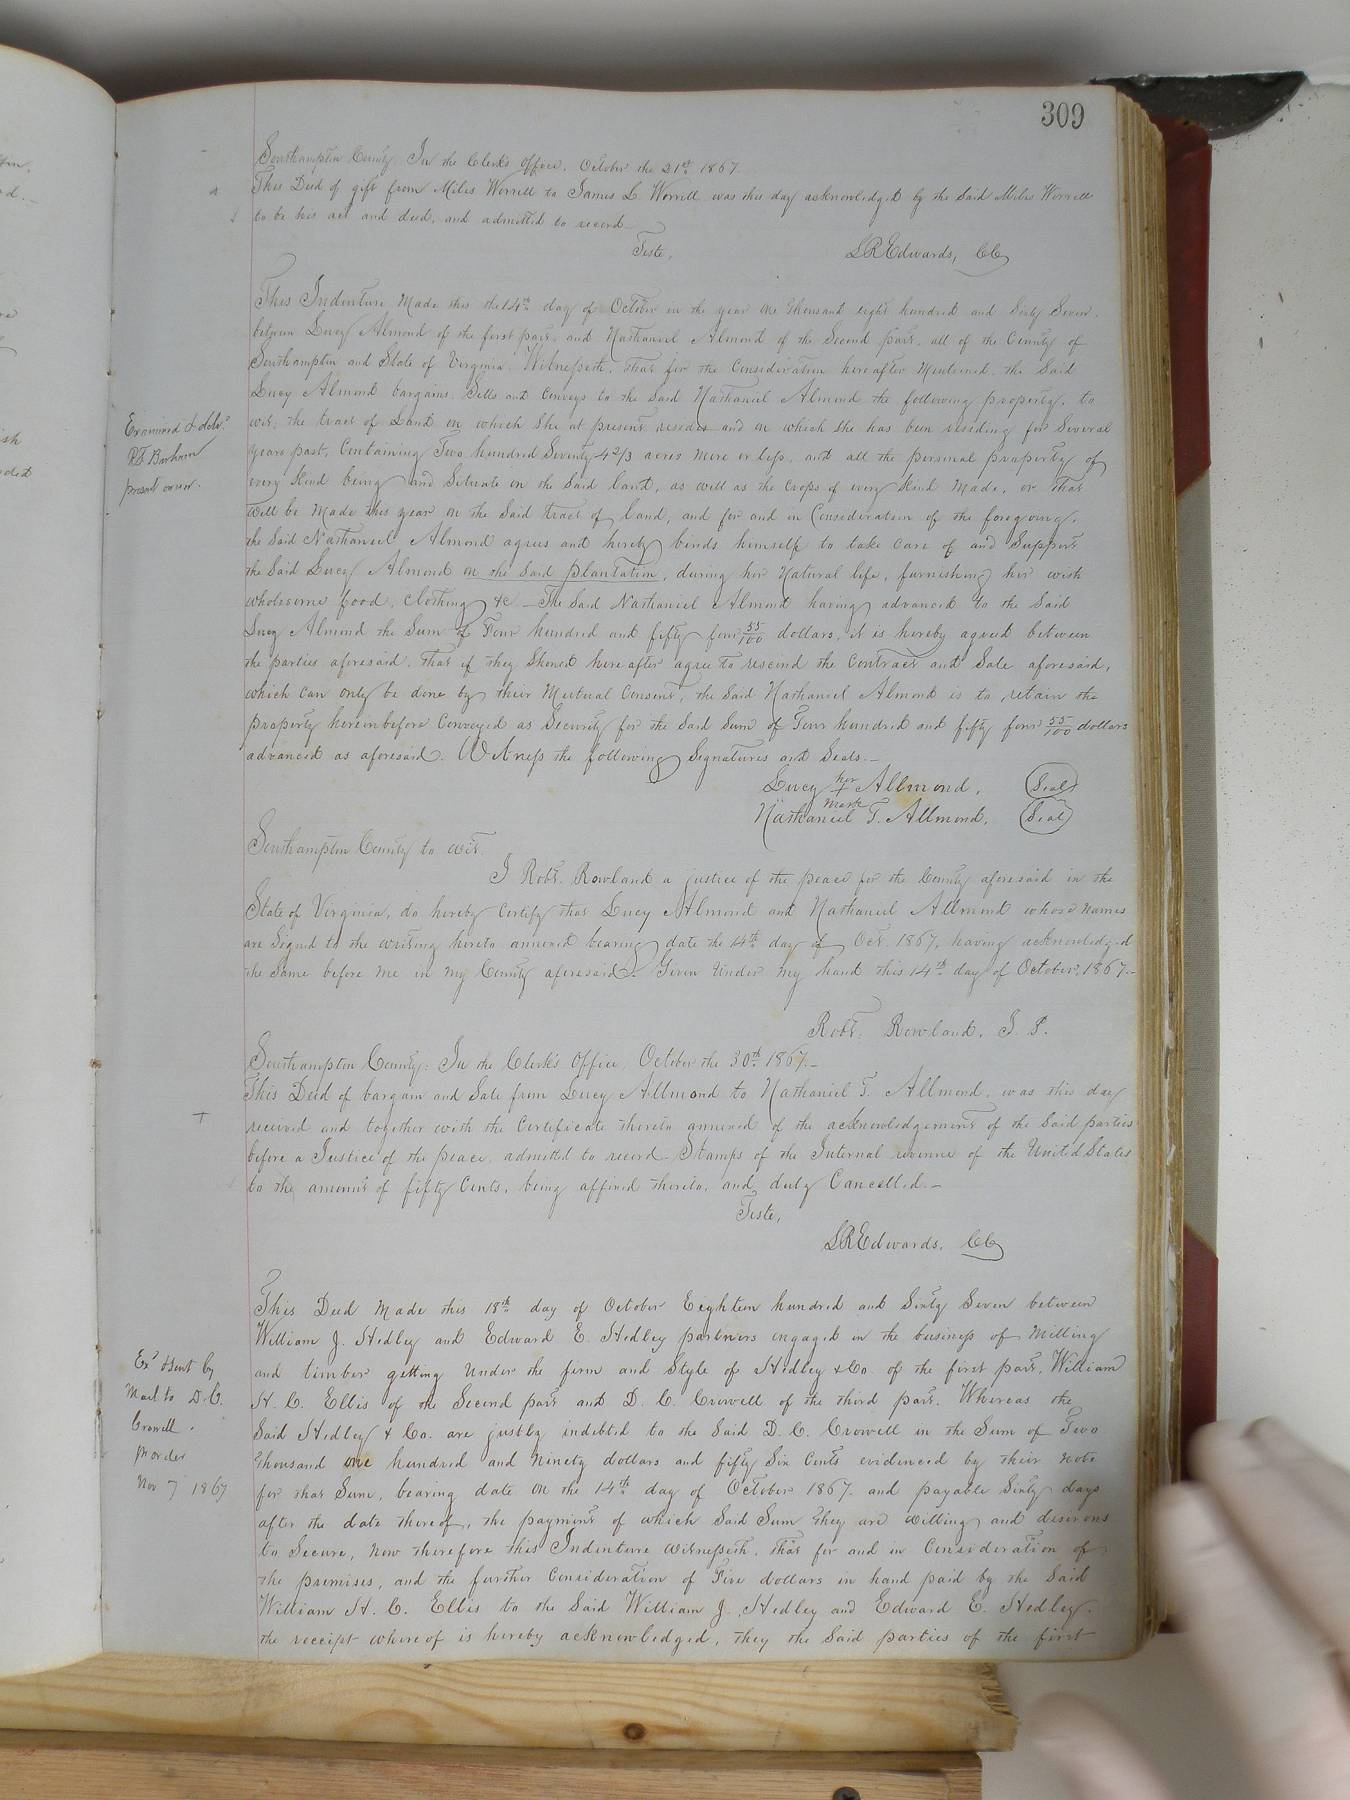 309
Southampton County, In the Clerk's Office, October the 21st 1867.
This Deed of gift from Miles Worrell to James L. Worrell was this day acknowledged by the said Miles Worrell
to be his act and deed, and admitted to record
Teste,
L R Edwards, CC
This Indenture Made this the 14th day of October in the year one thousand eight hundred and Sixty Seven.
between Lucy Almond of the first part, and Nathaniel Almond of the Second part, all of the County of
Southampton and State of Virginia. Witnesseth, that for the Consideration hereafter Mentioned, the Said
Lucy Almond bargains, Sells and Conveys to the Said Nathaniel Almond the following property, to
wit; the tract of Land on which She at present resides and on which she has been residing for Several
years past, Containing Two hundred Seventy 4 2/3 acres more or less, and all the personal property of
every Kind being and Situate on the Said land, as well as the Crops of every Kind Made, or that
will be Made this year on the Said tract of land, and for and in Consideration of the foregoing,
the Said Nathaniel Almond agrees and hereby binds himself to take Care of and Support
the Said Lucy Almond on the Said plantation, during her Natural life, furnishing her with
wholesome food, Clothing &c — The Said Nathaniel Almond having advanced to the Said
Lucy Almond the Sum of Four hundred and fifty four 55/100 dollars, it is hereby agreed between
the parties aforesaid, that if they Should hereafter agree to rescind the Contract and Sale aforesaid,
which can only be done by their Mutual Consent, the Said Nathaniel Almond is to retain the
property hereinbefore Conveyed as Security for the Said Sum of Four hundred and fifty four 55/100 dollars
advanced as aforesaid. Witness the following Signatures and Seals.—
Lucy her + mark Allmond, (Seal)
Nathaniel T. Allmond, (Seal)
Examined & deld
Barham
present owner.
Southampton County to wit.
I Robt. Rowland a justice of the peace for the County aforesaid in the
State of Virginia, do hereby Certify that Lucy Almond and Nathaniel Allmond whose names
are Signed to the writing hereto annexed bearing date the 14th day of Oct. 1867, having acknowledged
the Same before me in my County aforesaid. Given Under my hand this 14th day of October, 1867.—
Robt. Rowland, J. P.
Southampton County: In the Clerk's Office, October the 30th 1867.—
This Deed of bargain and Sale from Lucy Allmond to Nathaniel T. Allmond, was this day
received and together with the Certificate thereto annexed of the acknowledgement of the Said parties
before a Justice of the peace, admitted to record. Stamps of the Internal revenue of the United States
to the amount of fifty Cents, being affixed thereto, and duly Cancelled.—
Teste,
L R Edwards, CC
This Deed Made this 18th day of October Eighteen hundred and Sixty Seven between
William J. Hedley and Edward E. Hedley partners engaged in the business of Milling
and timber getting Under the firm and Style of Hedley & Co. of the first part, William
H. C. Ellis of the Second part and D. C. Crowell of the third part. Whereas the
Said Hedley & Co. are justly indebted to the Said D. C. Crowell in the Sum of Two
thousand one hundred and Ninety dollars and fifty Six Cents evidenced by their note
for that Sum, bearing date on the 14th day of October 1867, and payable Sixty days
after the date thereof, the payment of which Said Sum they are willing and desirous
to Secure, Now therefore this Indenture Witnesseth, that for and in Consideration of
the premises, and the further Consideration of Five dollars in hand paid by the Said
William H. C. Ellis to the Said William J. Hedley and Edward E. Hedley.
the receipt whereof is hereby acknowledged, they the Said parties of the first
Exd & sent by
Mail to D. C.
Crowell.
pr order
Nov 7 1867